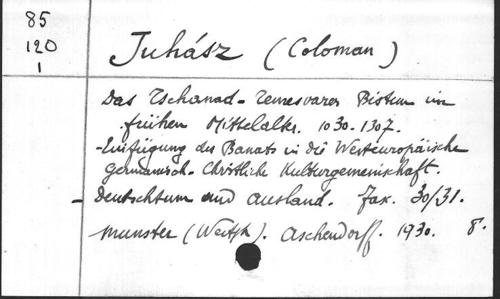 85
120
1
Juhász (Coloman)
Das Tschanad-Temesvarer Bistum im
frühen Mittelalter. 1030-1307.
- Einfügung des Banats in die Westeuropäische
germanisch-Christliche Kulturgemeinschaft.
- Deutschtum und Ausland. Fax. 30/31.
Munster (Westf). Aschendorff. 1930. 8°.